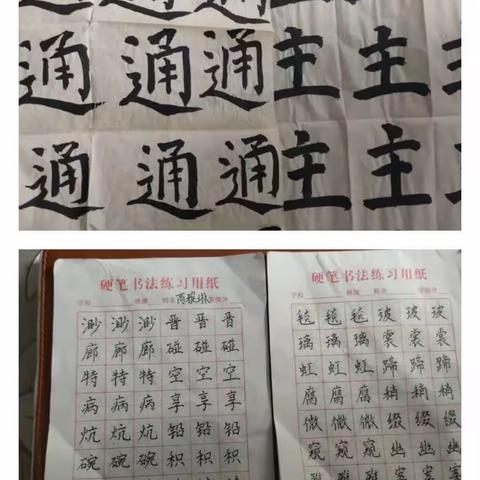 通 通 通 主 主 主
通 通 通 主 主
硬笔书法练习用纸
学校 班级 姓名 等级分
渺 渺 渺 晋 晋 晋
廊 廊 廊 碰 碰 碰
特 特 特 空 空 空
病 病 病 享 享 享
炕 炕 炕 铅 铅 铅
碗 碗 碗 积 积 积
硬笔书法练习用纸
学校 班级 姓名 等级分
毯 毯 毯 玻 玻 玻
璃 璃 璃 裳 裳 裳
虹 虹 虹 蹄 蹄 蹄
腐 腐 腐 稍 稍 稍
微 微 微 缀 缀 缀
窥 窥 窥 幽 幽 幽
雅 雅 雅